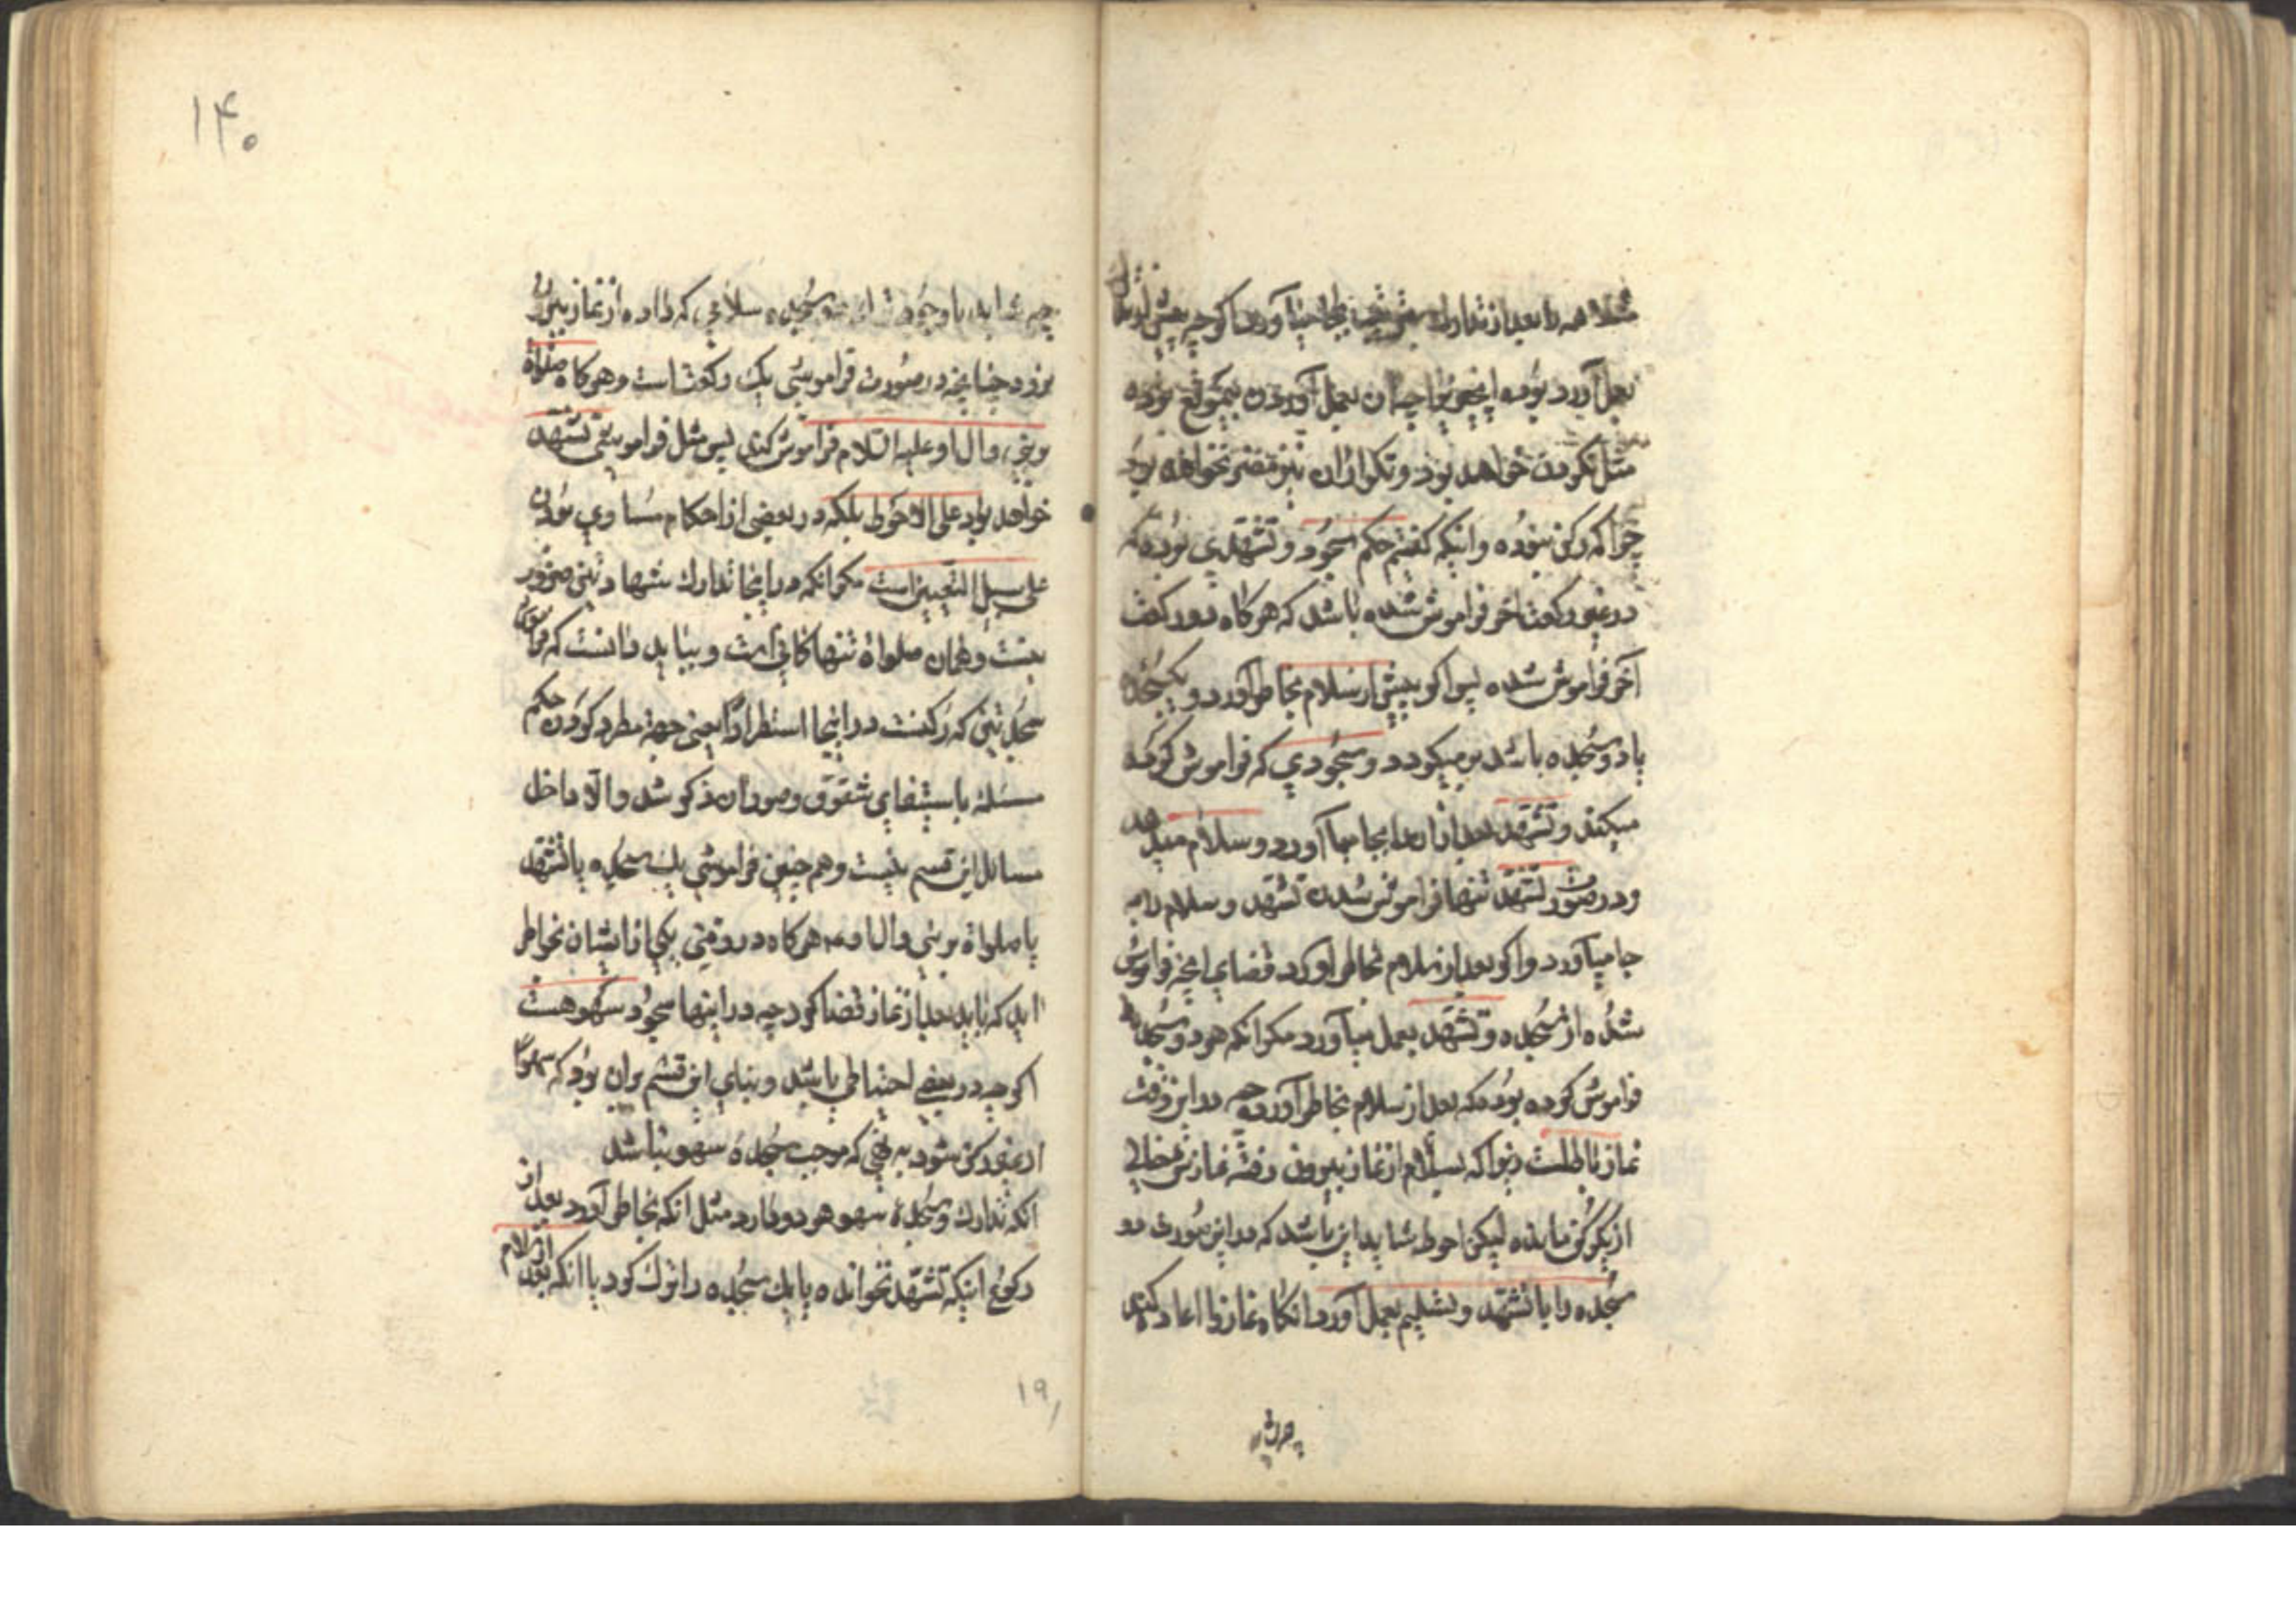 مثلا همه را بعد از تدارك بجا میآورد اگر چه پیش از تدارك
بعمل آورده بوده اینجوپواجبان بعمل آوردن بیموقع بوده
مثل نکردن خواهد بود و تکرار آن نیز مضر نخواهد بود
چرا که رکن نبوده و اینکه گفتیم حکم سجود و تشهدی بوده که
در غیر رکعت آخر فراموش شده باشد که هرگاه در رکعت
آخر فراموش شده پس اگر پیش از سلام بخاطر آورد و یکسجده
یا دو سجده باشد بر میگردد و سجودی که فراموش کرده
میکند و تشهد بعد از آنرا بجا میآورد و سلام میدهد
و در صورت تشهد تنها فراموش شدن تشهد و سلام را به
جا میآورد و اگر بعد از سلام بخاطر آورد قضای آنچه فراموش
شده از سجده و تشهد بعمل میآورد مگر آنکه هر دو سجده را
فراموش کرده بوده که بعد از سلام بخاطر آورده چه در این وقت
نماز باطلست زیرا که بسلام از نماز بیرون رفته نمازش خالی
از یکرکن مانده لیکن احوط شاید این باشد که در این صورت دو
سجده را با تشهد و تسلیم بعمل آورد آنگاه نماز را اعاده کند
چه شاید با وجود سجده سلامی که داده از نماز بیرون
نرود چنانچه در صورت فراموشی یك رکعت است و هرگاه صلواة
بر نبی و آل او علیه السلام فراموش کند پس مثل فراموشی تشهد
خواهد بود علی الاحوط بلکه در بعضی از احکام مساوی بودن
علی سبیل التعیین است مگر آنکه در اینجا تدارك شهادتین ضرور
نیست و همان صلواة تنها کافی است و بباید دانست که فراموشی
سجدتین که رکنست در اینجا استطرادا یعنی جهة مطرد کردن حکم
مسئله باستیفای شقوق و صور آن ذکر شد و الا داخل
مسائل این قسم نیست و هم چنین فراموشی یك سجده یا تشهد
یا صلواة بر نبی و آل او هرگاه در وقتی یکی از ایشان بخاطر
آید که باید بعد از نماز قضا کرد چه در اینها سجود سهو هست
اگر چه در بعضی احتیاطی باشد و بنای این قسم بر آن بود که سهوا
از غیر رکن شود به نحوی که موجب سجدهٔ سهو نباشد
آنکه تدارك و سجدهٔ سهو هر دو دارد مثل آنکه بخاطر آورد بعد از
رکوع اینکه تشهد نخوانده یا یك سجده را ترك کرد یا آنکه بعد از سلام
۱۴۰
۱۹۱